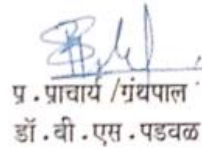 प्र.प्राचार्य /ग्रंथपाल
डॉ.बी.एस.पडवळ